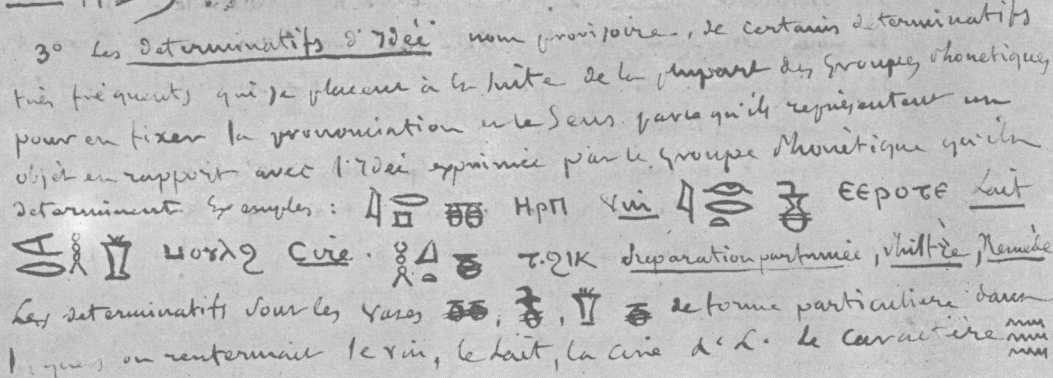 3° Les determinatifs d'Idée nom provisoire, de certains determinatifs
très fréquents qui se placent à la suite de la plupart des groupes phonetiques
pour en fixer la prononciation et le Sens parce qu'ils représentent un
objet en rapport avec l'Idée exprimée par le groupe Phonétique qu'ils
determinent. Exemples : ⲎⲢⲠ Vin ⲈⲈⲢⲞⲦⲈ Lait
ⲙⲟⲩⲗϩ Cire. ⲧ.ϩⲓⲕ preparation parfumée, philtre, Remède
Les determinatifs sont les vases , , de forme particulière dans
on renfermait le vin, le Lait, la Cire &c. Le caractère